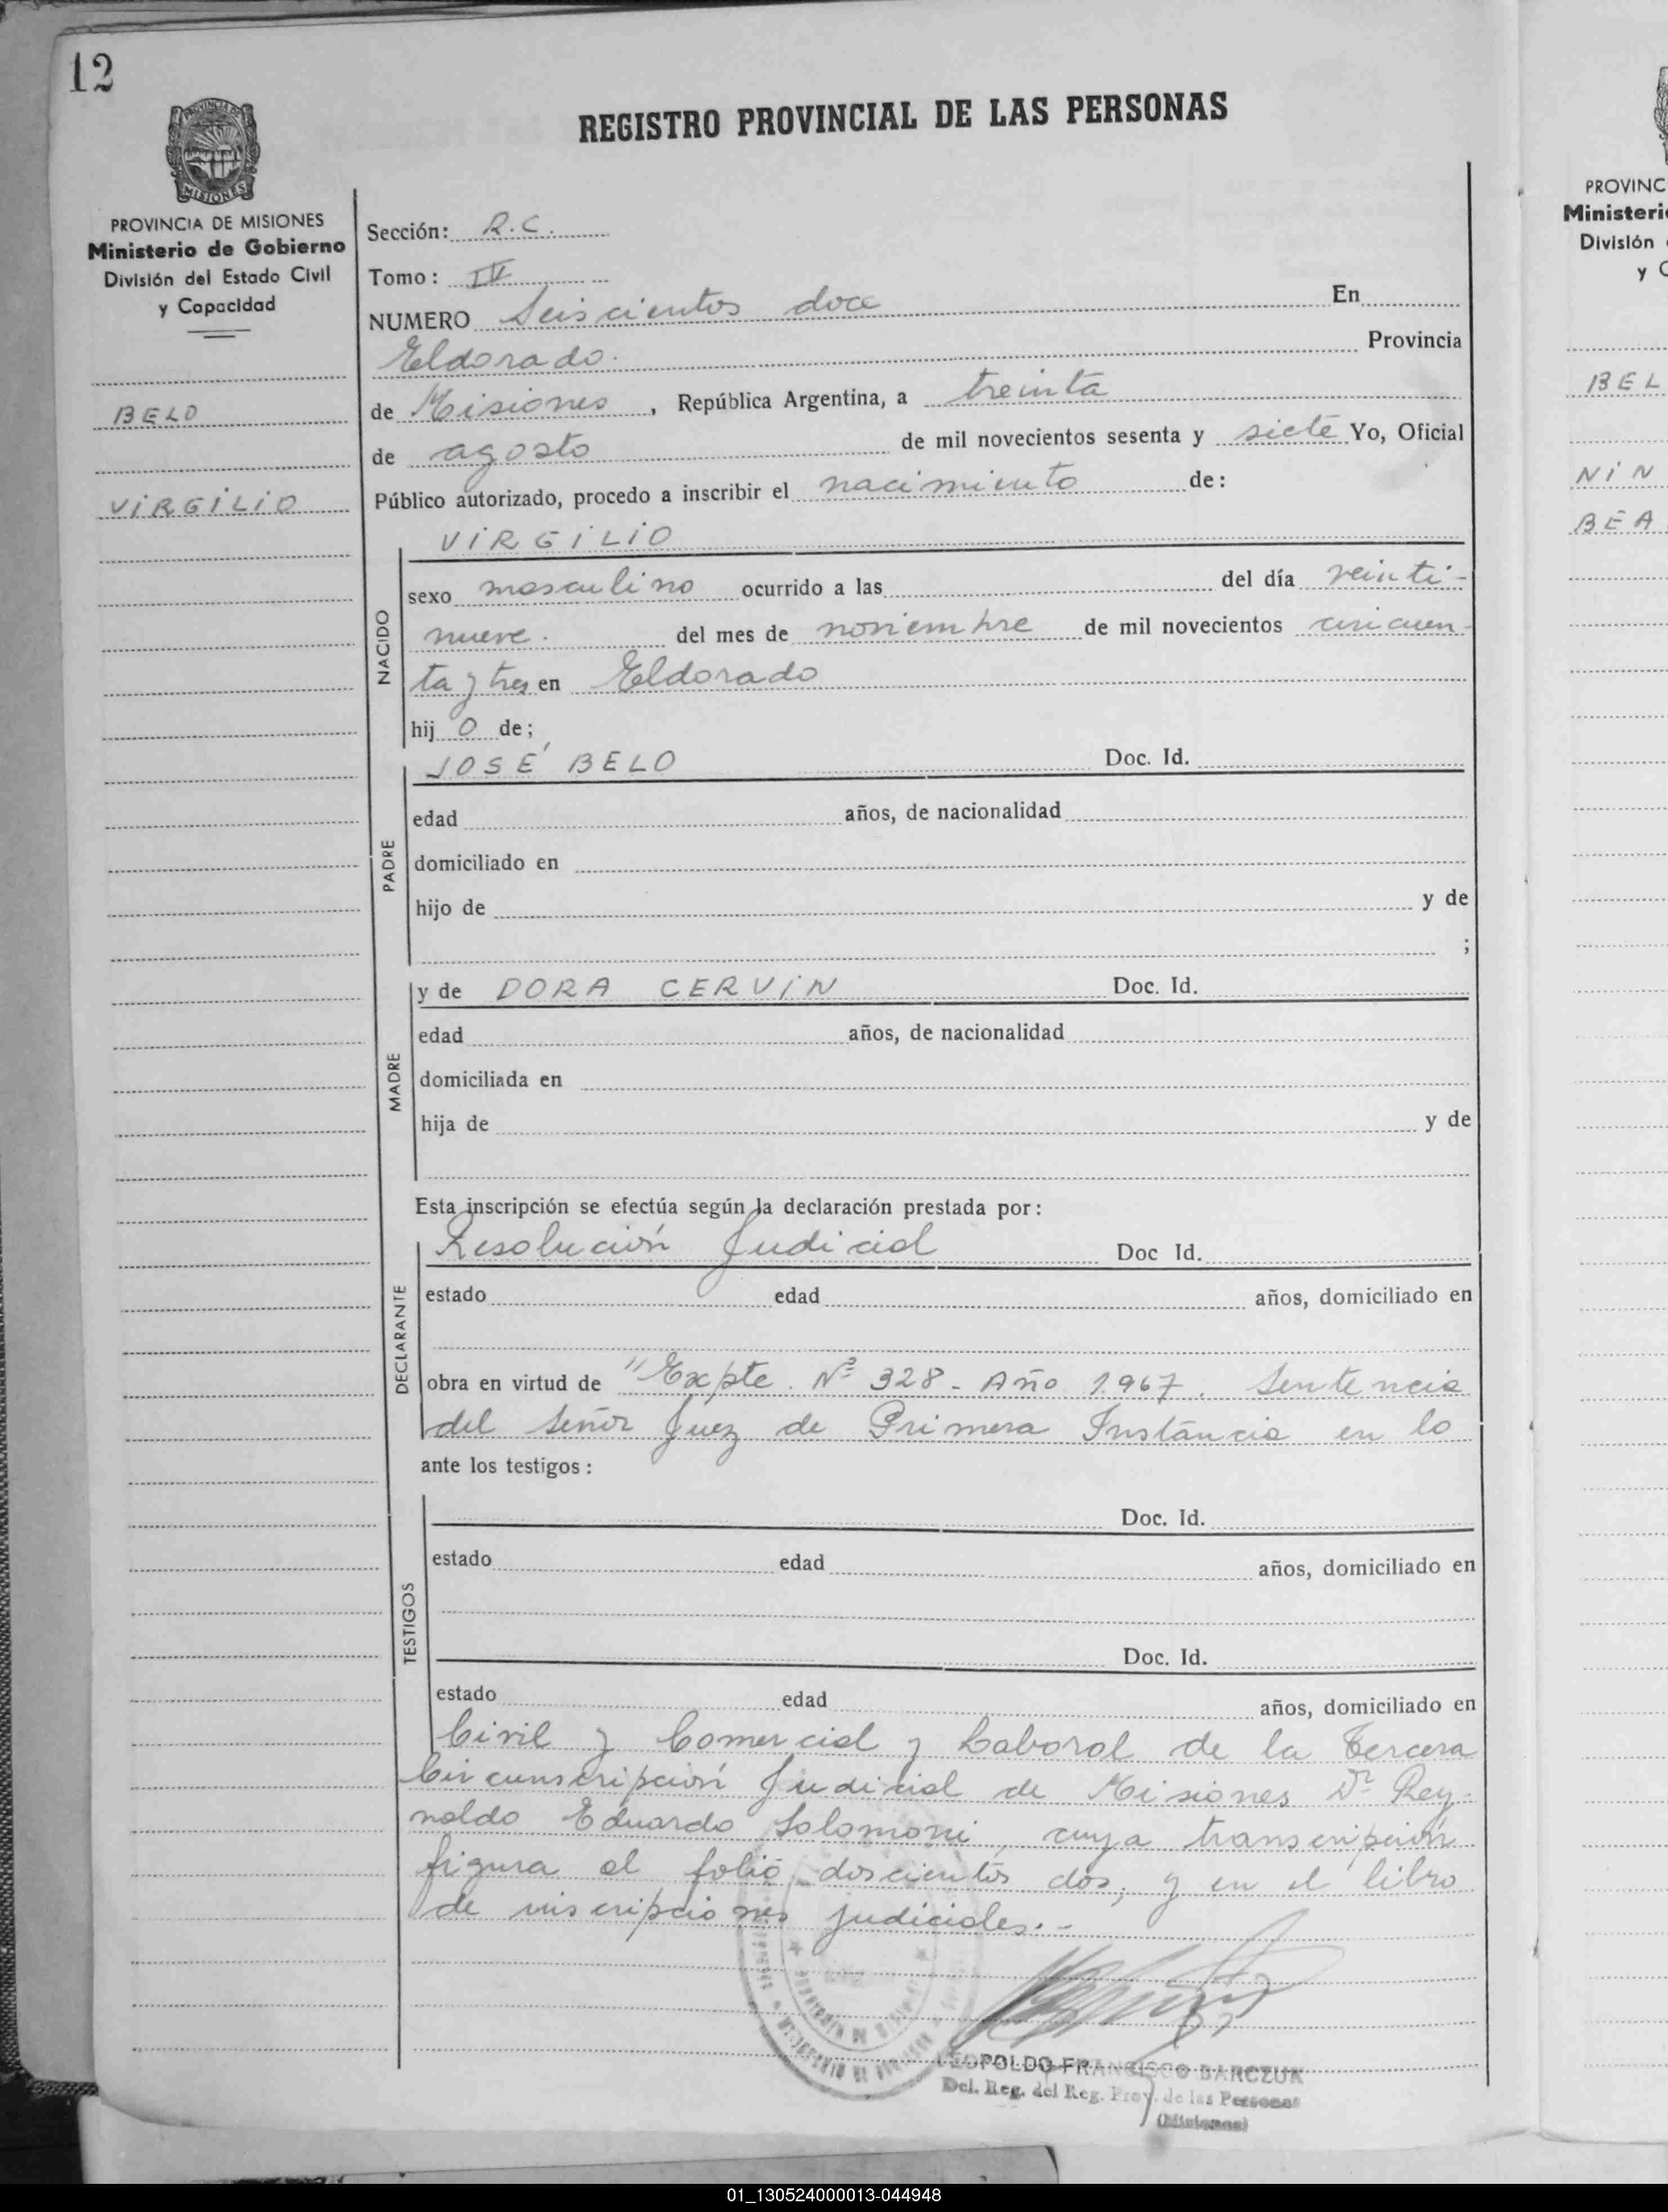 12
REGISTRO PROVINCIAL DE LAS PERSONAS
PROVINCIA DE MISIONES
MISIONES
PROVINCIA DE MISIONES
Ministerio de Gobierno
División del Estado Civil
y Capacidad
BELO
VIRGILIO
Sección: R.C.
Tomo: IV
NUMERO Seiscientos doce En
Eldorado. Provincia
de Misiones, República Argentina, a treinta
de agosto de mil novecientos sesenta y siete Yo, Oficial
Público autorizado, procedo a inscribir el nacimiento de:
NACIDO
VIRGILIO
sexo masculino ocurrido a las del día veinti-
nueve. del mes de noviembre de mil novecientos cincuen-
ta y tres en Eldorado
hij o de;
PADRE
JOSÉ BELO Doc. Id.
edad años, de nacionalidad
domiciliado en
hijo de y de
;
MADRE
y de DORA CERVIN Doc. Id.
edad años, de nacionalidad
domiciliada en
hija de y de
Esta inscripción se efectúa según la declaración prestada por:
DECLARANTE
Resolución Judicial Doc Id.
estado edad años, domiciliado en
obra en virtud de "Expte. Nº 328 - Año 1967. Sentencia
del Señor Juez de Primera Instancia en lo
ante los testigos:
TESTIGOS
Doc. Id.
estado edad años, domiciliado en
Doc. Id.
estado edad años, domiciliado en
Civil y Comercial y Laboral de la Tercera
Circunscripción Judicial de Misiones Dr. Rey-
naldo Eduardo Solomoni, cuya transcripción
figura al folio doscientos dos, y en el libro
de inscripciones judiciales.-
LEOPOLDO FRANCISCO BARCZUK
Del. Reg. del Reg. Prov. de las Personas
(Misiones)
PROVINC
Ministeri
División
y C
BEL
NIN
BEA
01_130524000013-044948